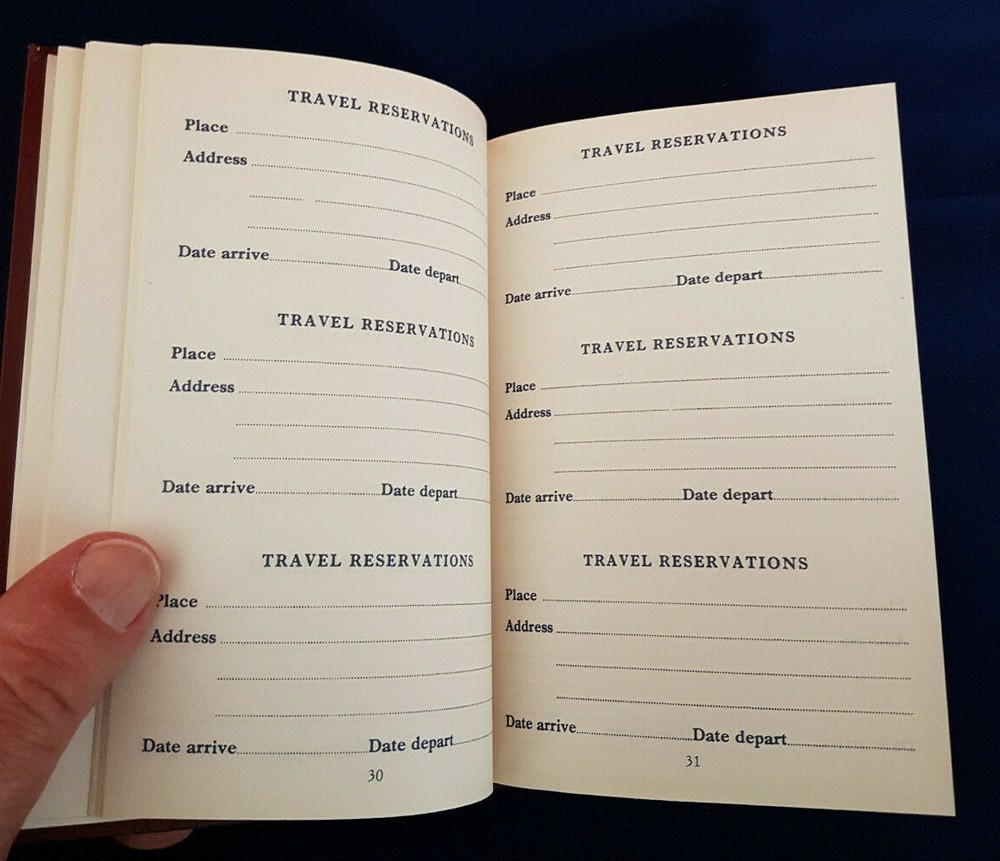 TRAVEL RESERVATIONS
Place
Address
Date arrive Date depart
TRAVEL RESERVATIONS
Place
Address
Date arrive Date depart
TRAVEL RESERVATIONS
Place
Address
Date arrive Date depart
30
TRAVEL RESERVATIONS
Place
Address
Date arrive Date depart
TRAVEL RESERVATIONS
Place
Address
Date arrive Date depart
TRAVEL RESERVATIONS
Place
Address
Date arrive Date depart
31